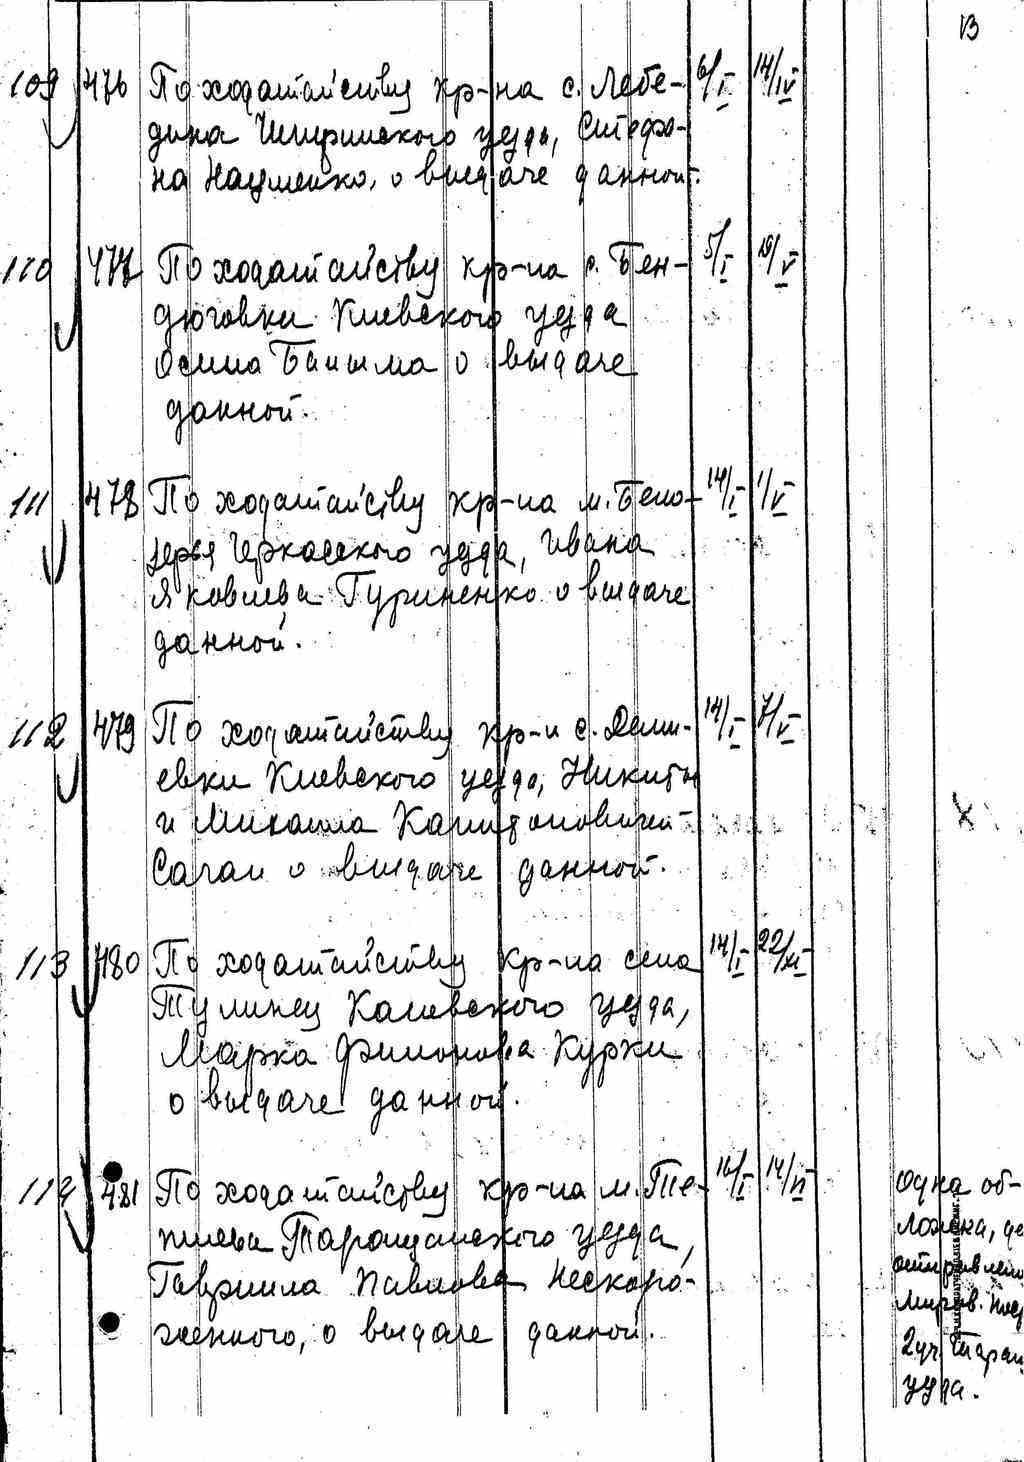 13
109 476 По ходатайству кр-на с. Лебе- 6/I 14/IV
дина Чигиринского уезда, Стефа-
на Науменко, о выдаче данной.
110 477 По ходатайству кр-на с. Бен- 5/I 19/V
дюговки Киевского уезда
Осипа о выдаче
данной.
111 478 По ходатайству кр-на м. Бело- 14/I 1/V
зерья Черкасского уезда, Ивана
Яковлева Гуриненко о выдаче
данной.
112 479 По ходатайству кр-н с. Деми- 14/I 7/V
евки Киевского уезда, Никиты
и Михаила Капитоновичей
Саган о выдаче данной.
113 480 По ходатайству кр-на села 14/I 22/XI
Тулинец Каневского уезда,
Марка Филонова Курки
о выдаче данной.
114 481 По ходатайству кр-на м. Те- 16/I 14/VI
тиева Таращанского уезда,
Гавриила Павлова Нескоро-
женного, о выдаче данной.
Одна об-
ложка, де
отправлено
Миров. Пос
2 уч. Таращ.
уезда.